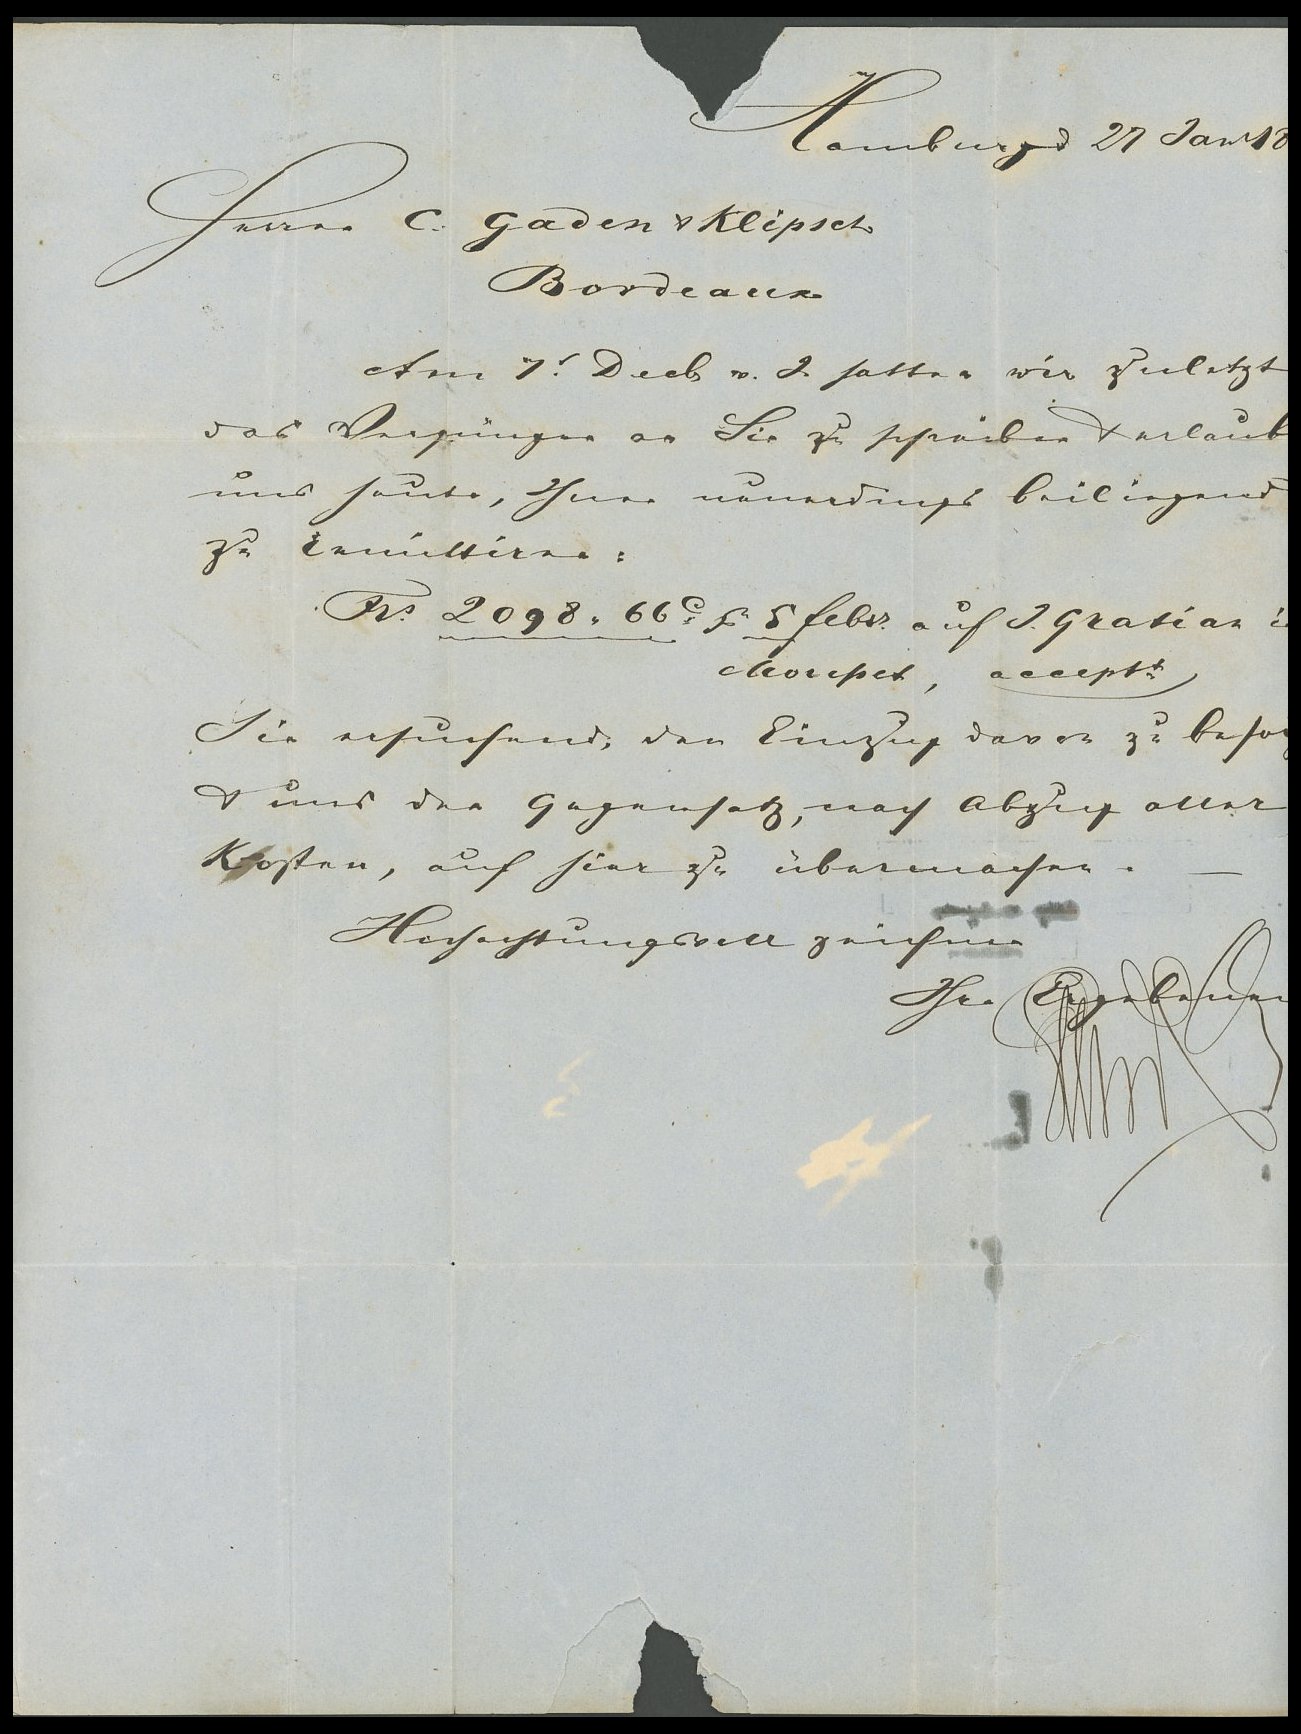 Hamburg d 27 Janr 18
Herren C. Gaden & Klipsch
Bordeaux
Am 7t Decb v. J. hatten wir zuletzt
das Vergnügen an Sie zu schreiben & erlaub
uns heute, Ihnen neuerdings beiliegend
zu remittiren:
Frs. 2098. 66c. pr 5 febr. auf J. Gratian i
accept
Sie ersuchend, den Einzug davon zu besorg
& uns den Gegensatz, nach Abzug aller
Kosten, auf hier zu übermachen. —
Hochachtungsvoll zeichnen
Ihre Ergebenen